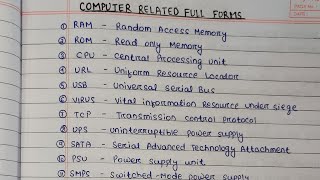 COMPUTER RELATED FULL FORMS
① RAM - Random Access Memory
② ROM - Read only Memory
③ CPU - Central Processing unit
④ URL - Uniform Resource Locator
⑤ USB - Universal Serial Bus
⑥ VIRUS - Vital information Resource under siege
⑦ TCP - Transmission control protocol
⑧ UPS - uninterruptible power supply
⑨ SATA - Serial Advanced Technology Attachment
⑩ PSU - Power supply unit
⑪ SMPS - Switched-Mode power supply